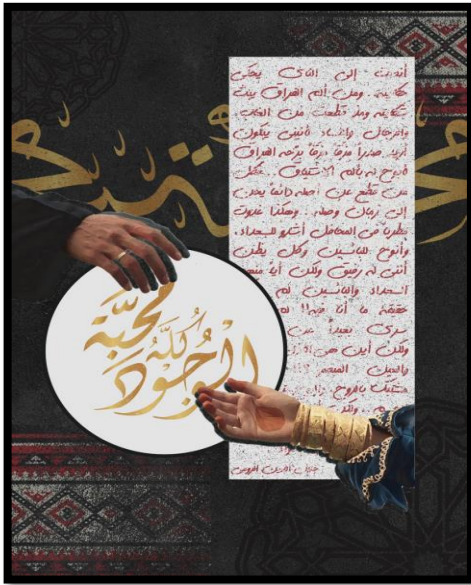 أنصت إلى الناي يحكي
حكايته .. ومن ألم الفراق يبث
شكايته ومذ قطعت من الغاب
والرجال والنساء لأنيني يبكون
أريد صدراً مِزَقاً مِزَقاً برَّحه الفراق
لأبوح له بألم الاشتياق .. فكل
من قطع عن أصله دائماً يحن
إلى زمان وصله .. وهكذا غدوت
مطرباً في المحافل أشدو للسعداء،
وأنوح للبائسين وكل يظن
أنني له رفيق ولكن أياً منهم
السعداء والبائسين لم
حقيقة ما أنا فيه!! لم
سري بعيداً عن
ولكن أين هي
والعين
جلال الدين الرومي
محبة
كله
الوجود